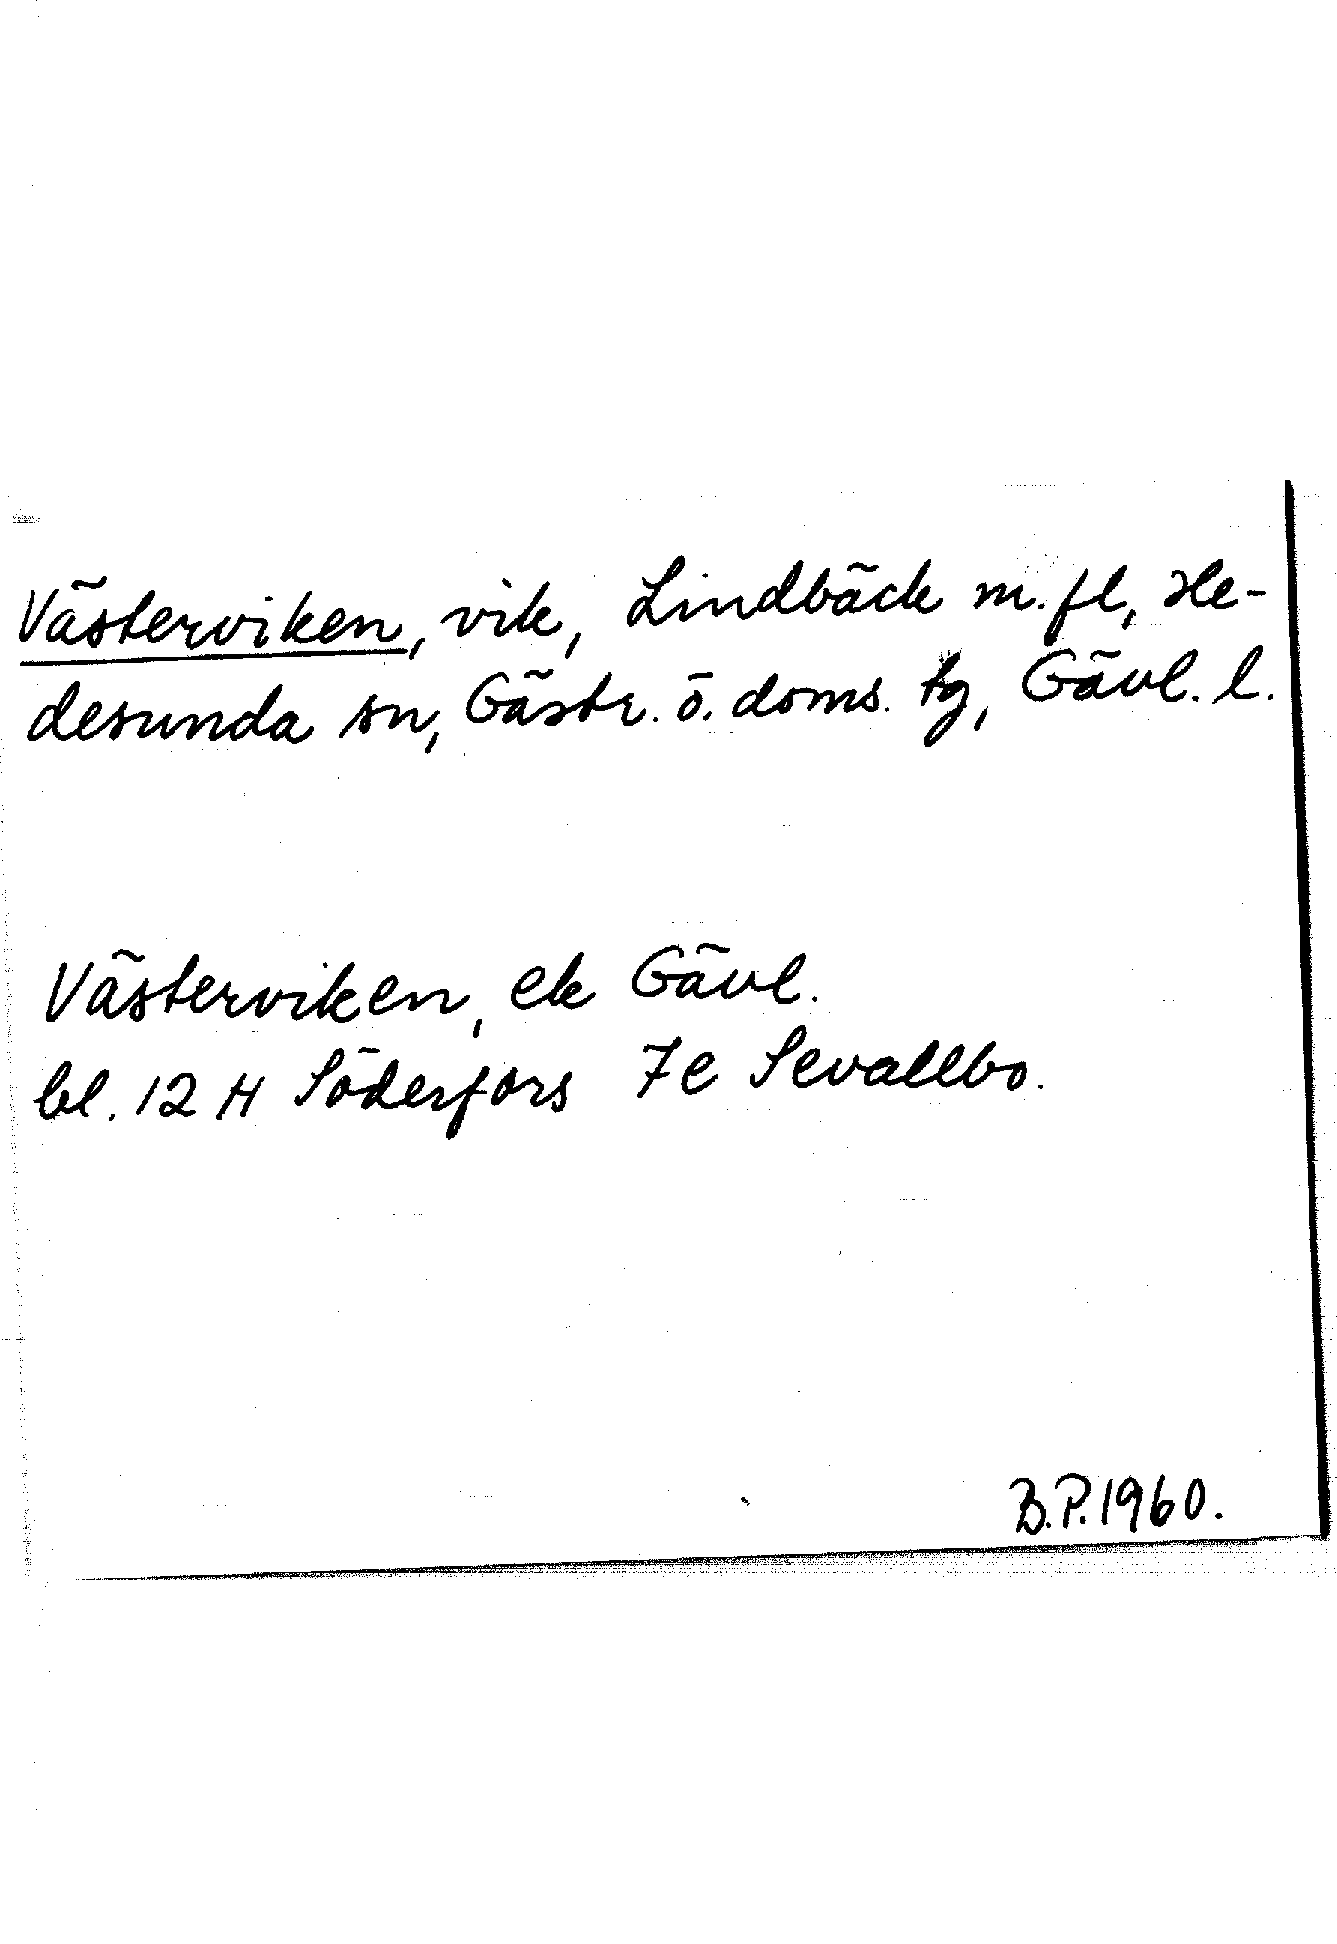 Västerviken, vik, Lindbäck m.fl, He-
desunda sn, Gästr. ö. doms. tg, Gävl. l.
Västerviken, ek Gävl.
bl. 12 H Söderfors 7e Sevallbo.
B.P.1960.